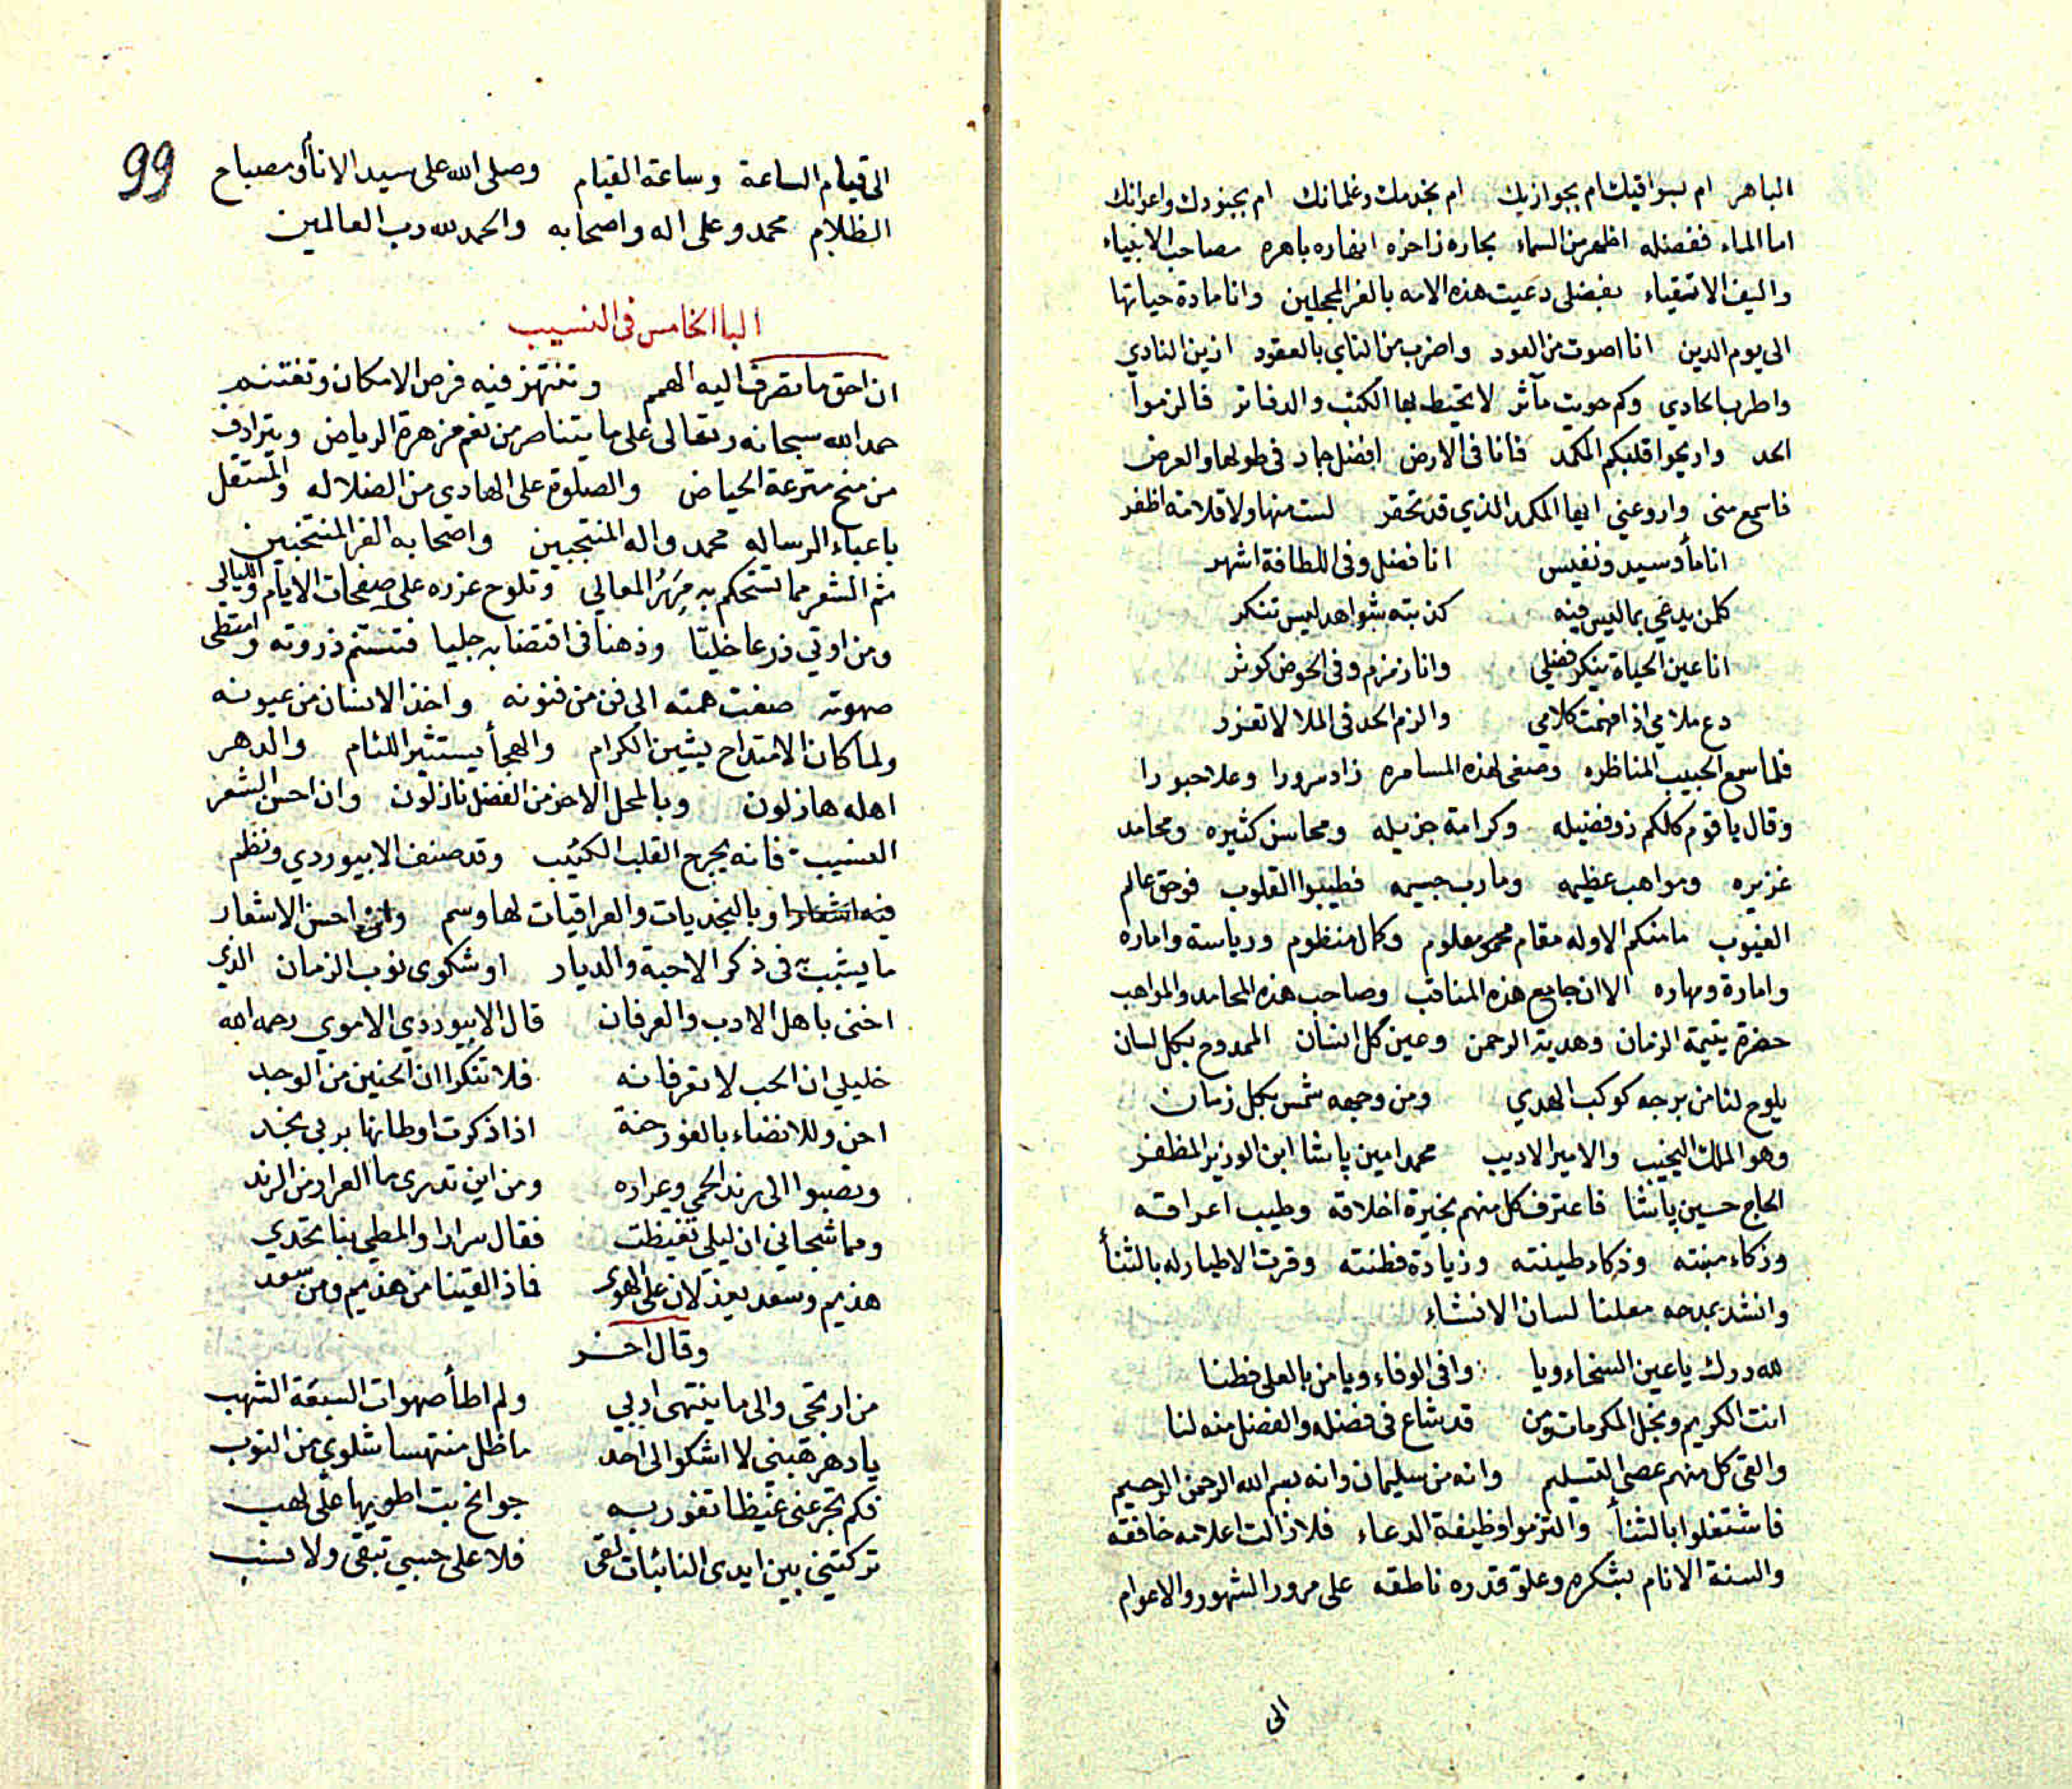 الباهر ام بسواقيك ام بجوازيك ام بخدمك وغلمانك ام بجنودك واعوانك
اما الماء ففضله اظهر من السماء بحاره زاخره انهاره باهره مصاحب الانبياء
واليف الاتقياء بفضلى دعيت هذه الامه بالغر المحجلين وانا مادة حياتها
الى يوم الدين انا اصوت من العود واضرب من الناي بالعقود ازين النادي
واطرب الحادي وكم حويت مآثر لا يحيط بها الكتب والدفاتر فالزموا
الحد واريحوا قلبكم المكمد فانا فى الارض افضل جماد فى طولها والعرض
فاسمع منى واروعني ايها المكمد الذي قد تحقر لست منها ولا قلامة اظفر
انا مأ وسيد ونفيس انا فضل وفى اللطافة اشهر
كلمن يدعي بما ليس فيه كذبته شواهد ليس تنكر
انا عين الحياة تنكر فضلي وانا زمزم وفى الحوض كوثر
دع ملامي اذا فهمت كلامي والزم الحد فى الملا لا تعزر
فلما سمع الحبيب المناظره وصغى لهذه المسامره زاد سرورا وعلا حبورا
وقال يا قوم كلكم ذو فضيله وكرامة جزيله ومحاسن كثيره ومحامد
غزيره ومواهب عظيمه ومارب جسيمه فطيبوا القلوب فوحق عالم
الغيوب ما منكم الا وله مقام معلوم وكمال منظوم ورياسة واماره
وامارة ومهاره الا ان جامع هذه المناقب وصاحب هذه المحامد والمواهب
حضرة يتيمة الزمان وهدية الرحمن وعين كل انسان الممدوح بكل لسان
يلوح لنا من برجه كوكب الهدي ومن وجهه شمس بكل زمان
وهو الملك النجيب والامير الاديب محمد امين پاشا ابن الوزير المظفر
الحاج حسين پاشا فاعترف كل منهم بخيرة اخلاقه وطيب اعراقه
وذكاء منبته وذكاء طينته وزيادة فطنته وقرت الاطيار له بالثنأ
وانشد بمدحه معلنا لسان الانشاء
لله درك يا عين السخاء ويا وافى الوفاء ويا من بالعلى فطنا
انت الكريم ونجل المكرمات ومن قد شاع فى فضله والفضل منه لنا
والقى كل منهم عصى التسليم وانه من سليمان وانه بسم الله الرحمن الرحيم
فاشتغلوا بالثنأ والتزموا وظيفة الدعاء فلا زالت اعلامه خافقه
والسنة الانام بشكره وعلو قدره ناطقه على مرور الشهور والاعوام
الى
99
الى قيام الساعة وساعة القيام وصلى الله على سيد الانام ومصباح
الظلام محمد وعلى اله واصحابه والحمد لله رب العالمين
الباب الخامس فى النسيب
ان احق ما تصرف اليه الهمم وتنتهز فيه فرص الامكان وتغتنم
حمد الله سبحانه وتعالى على ما يتناصر من نعم مزهرة الرياض ويترادف
من منح مترعة الحياض والصلوة على الهادى من الضلاله والمستقل
باعباء الرساله محمد واله المنتجبين واصحابه الغر المنتخبين
ثم الشعر مما تستحكم به مرر المعالي وتلوح غرره على صفحات الايام والليالي
ومن اوتي ذرعا خليّا وذهنا فى اقتضابه جليا فتسنم ذروته وامتطى
صهوته صغت همته الى فن من فنونه واخذ الانسان من عيونه
ولما كان الامتداح يشين الكرام والهجأ يستثير اللئام والدهر
اهله هازلون وبالمحل الاحز من الفضل نازلون وان احسن الشعر
النسيب فانه يجرح القلب الكئيب وقد صنف الابيوردي ونظم
فيه اشعارا وبالنجديات والعراقيات لها وسم واحسن الاشعار
ما يشبب فى ذكر الاحبة والديار او شكوى نوب الزمان الذى
اخنى باهل الادب والعرفان قال الابيوردي الاموي رحمه الله
خليلي ان الحب لا تعرفانه فلا تنكرا ان الحنين من الوجد
احن وللانضاء بالغور حنة اذا ذكرت اوطانها بربى نجد
وتصبوا الى رند الحمي وعراره ومن اين تدرى ما العرار من الرند
ومما شجاني ان ليلي تغيظت فقال سرارا والمطي بنا تخدي
هذيم وسعد يعذلان على الهوى فماذا لقينا من هذيم ومن سعد
وقال اخر
من ارتجى والى ما ينتهى اربي ولم اطأ صهوات السبعة الشهب
يا دهر هبنى لا اشكو الى احد ما ظل منتهسا شلوى من النوب
فكم تجرعنى غيظا تفور به جوانح بت اطويها على لهب
تركتني بين ايدى النائبات لقى فلا على حسبي تبقى ولا نسب